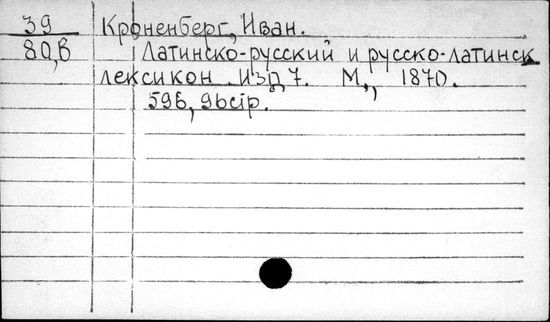 39 Кроненберг, Иван.
80,в Латинско-русский и русско-латинск
лексикон. Изд 7. М,, 1870.
596, 96стр.